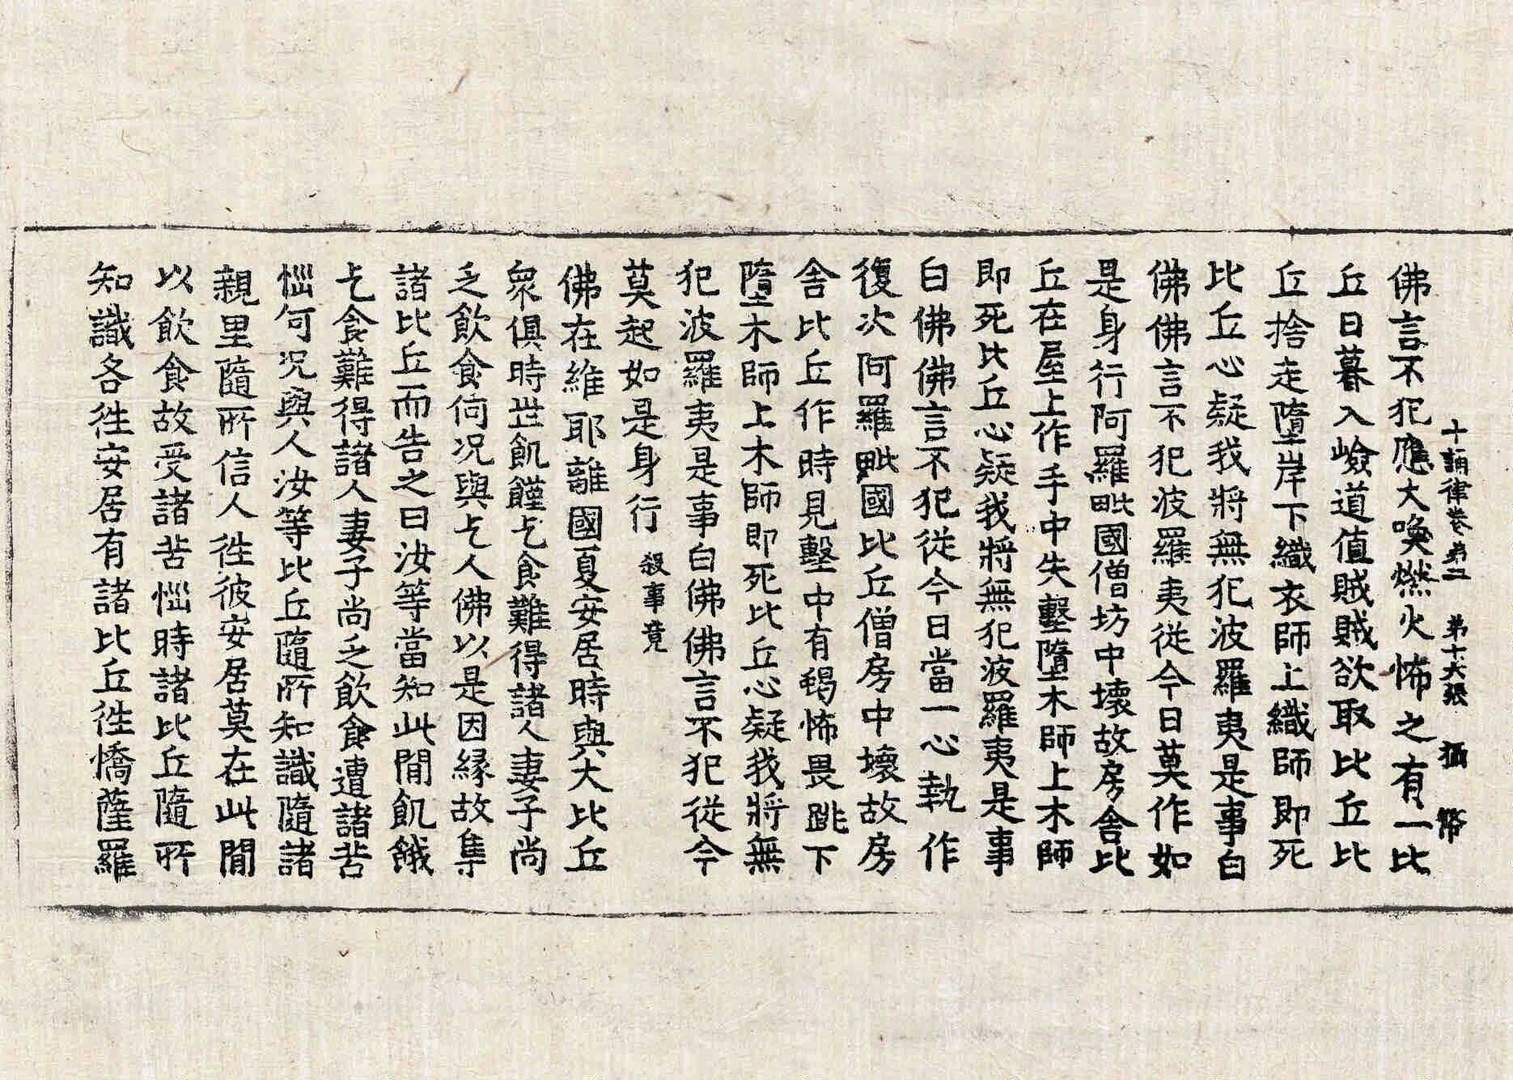 十誦律卷第二　第十六張　攝　幣
佛言不犯應大喚燃火怖之有一比
丘日暮入嶮道值賊賊欲取比丘比
丘捨走墮岸下織衣師上織師即死
比丘心疑我將無犯波羅夷是事白
佛佛言不犯波羅夷從今日莫作如
是身行阿羅毗國僧坊中壞故房舍比
丘在屋上作手中失墼墮木師上木師
即死比丘心疑我將無犯波羅夷是事
白佛佛言不犯從今日當一心執作
復次阿羅毗國比丘僧房中壞故房
舍比丘作時見墼中有蝎怖畏跳下
墮木師上木師即死比丘心疑我將無
犯波羅夷是事白佛佛言不犯從今
莫起如是身行 殺事竟
佛在維耶離國夏安居時與大比丘
衆俱時世飢饉乞食難得諸人妻子尚
乏飲食何况與乞人佛以是因緣故集
諸比丘而告之曰汝等當知此閒飢餓
乞食難得諸人妻子尚乏飲食遭諸苦
惱何况與人汝等比丘隨所知識隨諸
親里隨所信人往彼安居莫在此閒
以飲食故受諸苦惱時諸比丘隨所
知識各往安居有諸比丘往憍薩羅